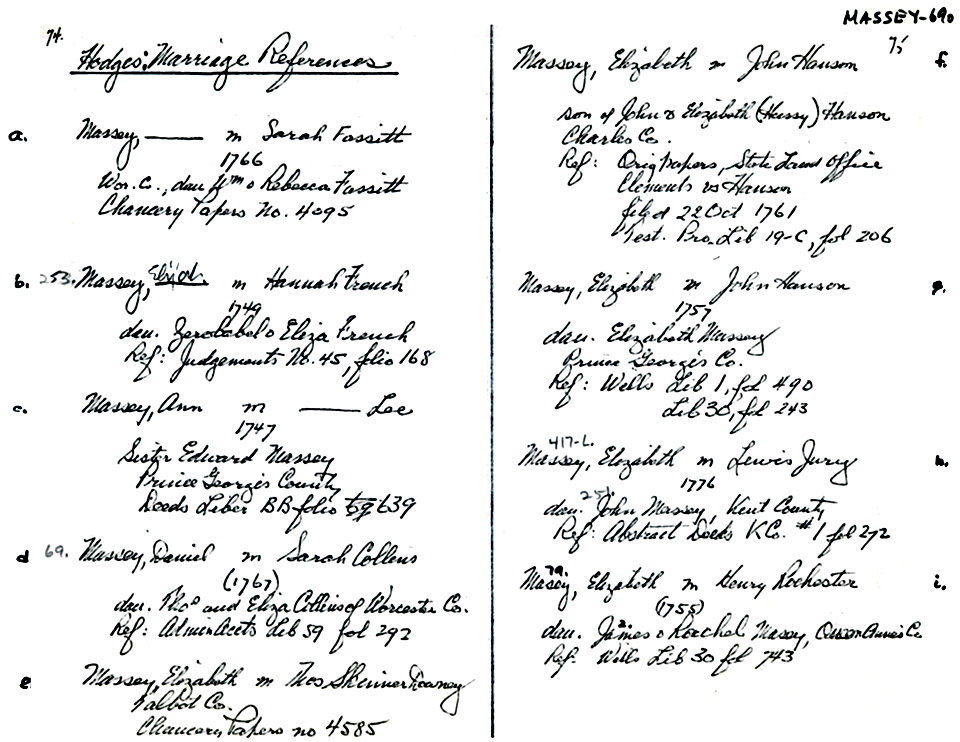 MASSEY-690
74.
Hodges' Marriage References
a. Massey, —— m Sarah Fassitt
1766
Wor. Co., dau Wm & Rebecca Fassitt
Chancery Papers No. 4095
b. 253. Massey, Elijah m Hannah French
1749
dau. Zerobabel & Eliza French
Ref: Judgements No. 45, folio 168
c. Massey, Ann m —— Lee
1747
Sister Edward Massey
Prince George's County
Deeds Liber BB folio 639
d 69. Massey, Daniel m Sarah Collins
(1767)
dau. Thos and Eliza Collins of Worcester Co.
Ref: Admin Accts Lib 59 fol 292
e Massey, Elizabeth m Thos Skinner Downey
Talbot Co.
Chancery Papers no 4585
75
Massey, Elizabeth m John Hanson f.
son of John & Elizabeth (Hussy) Hanson
Charles Co.
Ref: Orig papers, State Land Office
Clements vs Hanson
filed 22 Oct 1761
Test. Pro. Lib 19-C, fol 206
Massey, Elizabeth m John Hanson g.
1757
dau. Elizabeth Massey
Prince George's Co.
Ref: Wells Lib 1, fol 490
Lib 30, fol 243
417-L.
Massey, Elizabeth m Lewis Jury h.
1776
251.
dau. John Massey, Kent County
Ref: Abstract Deeds K Co. #1 fol 272
79.
Massey, Elizabeth m Henry Rochester i.
(1755)
dau. James & Rachel Massey, Queen Annes Co
Ref: Wills Lib 30 fol 743